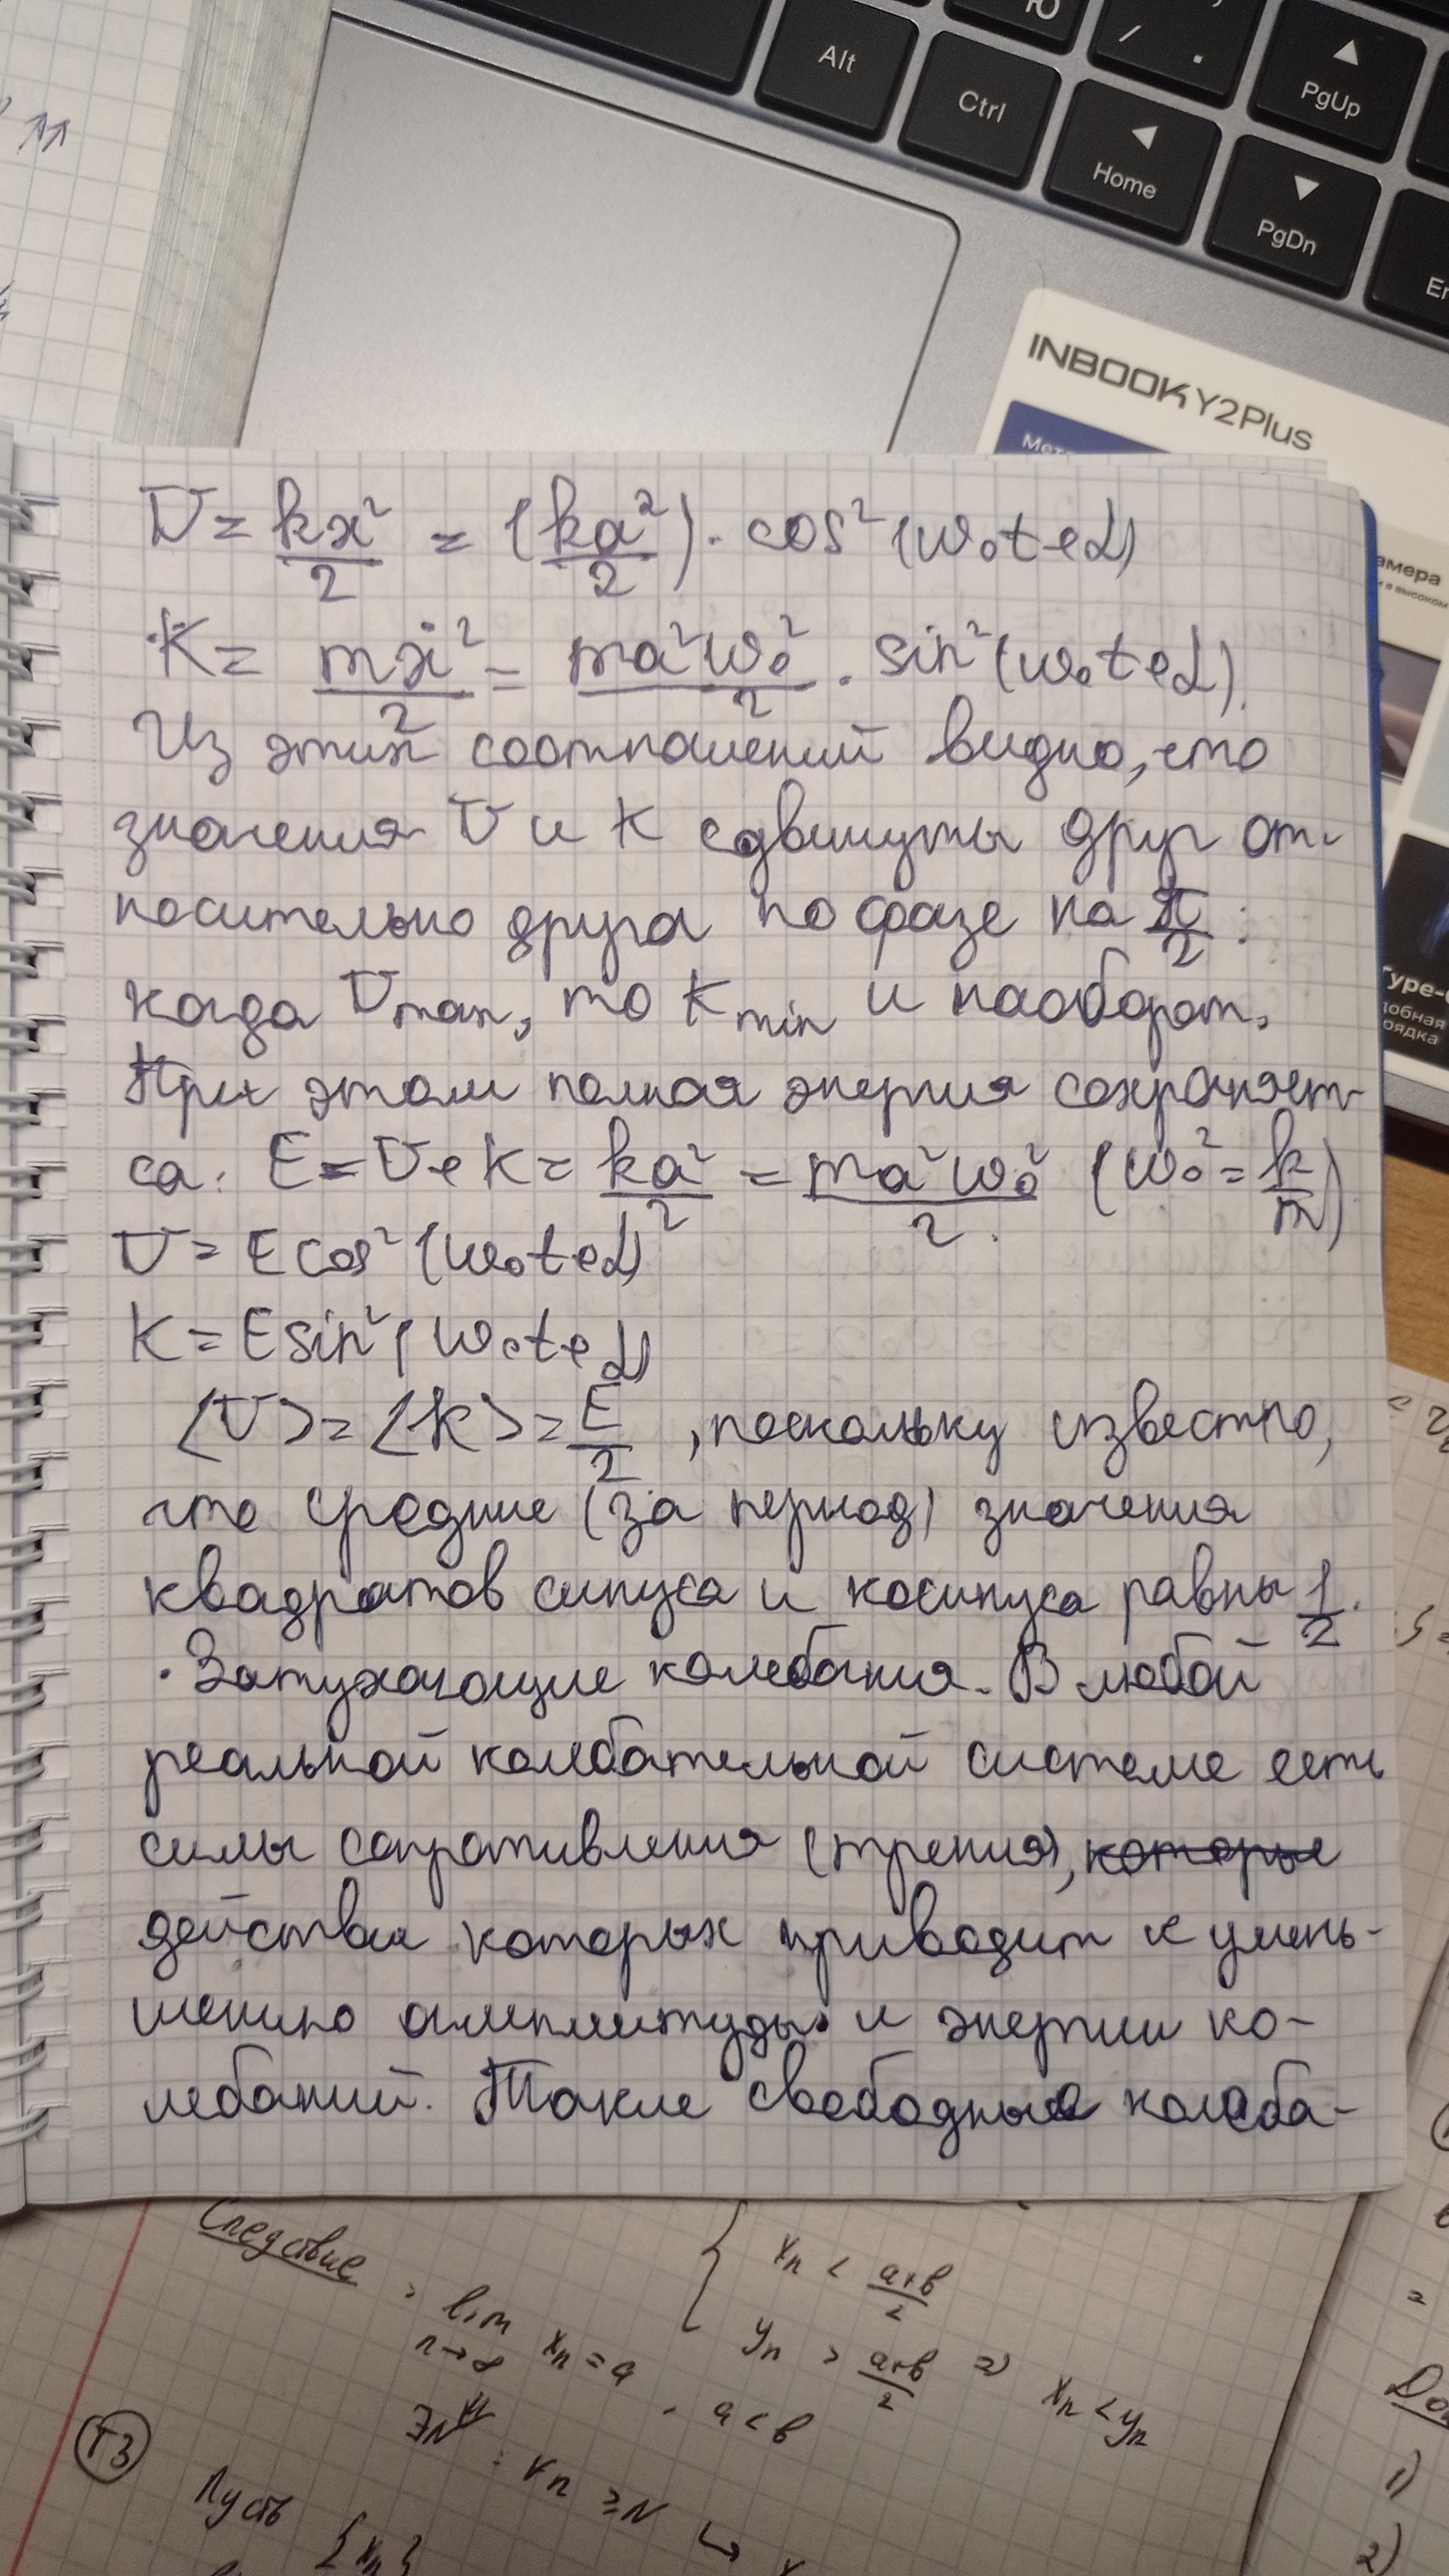 Ю
Alt
Ctrl
Home
PgUp
PgDn
INBOOK Y2 Plus
U = kx²/2 = (ka²/2) · cos²(ω₀t+α)
K = mẋ²/2 = ma²ω₀²/2 · sin²(ω₀t+α).
Из этих соотношений видно, что
значения U и K сдвинуты друг от-
носительно друга по фазе на π/2:
когда Umax, то Kmin и наоборот.
При этом полная энергия сохраняет-
ся: E = U+K = ka²/2 = ma²ω₀²/2. (ω₀² = k/m)
U = E cos²(ω₀t+α)
K = E sin²(ω₀t+α)
⟨U⟩ = ⟨K⟩ = E/2, поскольку известно,
что средние (за период) значения
квадратов синуса и косинуса равны 1/2.
· Затухающие колебания. В любой
реальной колебательной системе есть
силы сопротивления (трения), которые
действия которых приводит к умень-
шению амплитуды и энергии ко-
лебаний. Такие свободные колеба-
Следствие
lim xn = a, a < b
n→∞
{ xn < a+b/2
yn > a+b/2 ⇒ xn < yn
∃N : ∀n ≥ N ↪
T3
Пусть {xn}
1)
2)